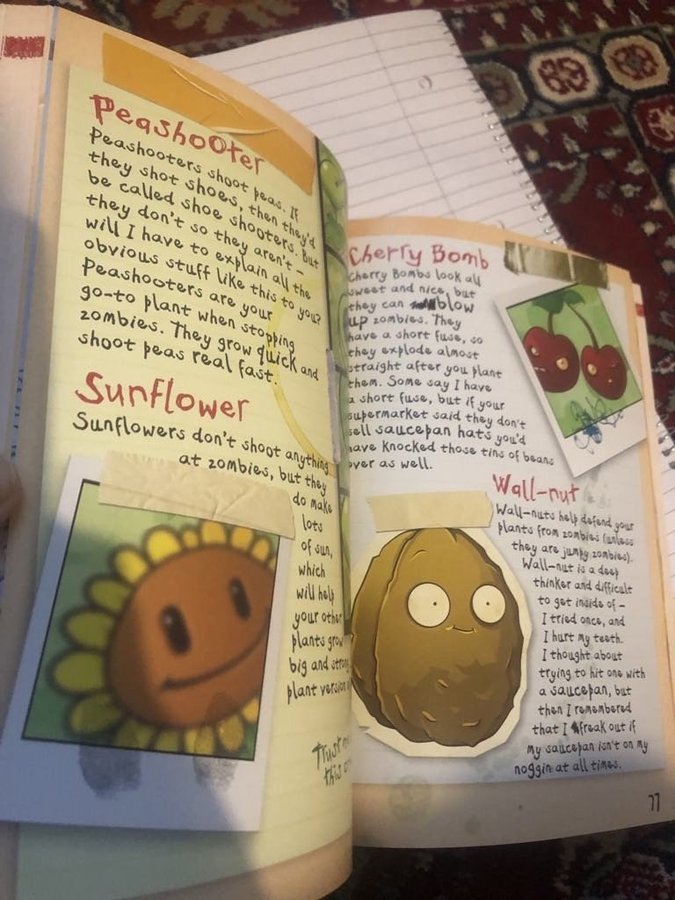 Peashooter
Peashooters shoot peas. If
they shot shoes, then they'd
be called shoe shooters. But
they don't so they aren't –
will I have to explain all the
obvious stuff like this to you?
Peashooters are your
go-to plant when stopping
zombies. They grow quick and
shoot peas real fast.
Sunflower
Sunflowers don't shoot anything
at zombies, but they
do make
lots
of sun,
which
will help
your other
plants grow
big and strong
plant version
Trust
this
Cherry Bomb
Cherry Bombs look all
sweet and nice, but
they can blow
up zombies. They
have a short fuse, so
they explode almost
straight after you plant
them. Some say I have
a short fuse, but if your
supermarket said they don't
sell saucepan hats you'd
have knocked those tins of beans
over as well.
Wall-nut
Wall-nuts help defend your
plants from zombies (unless
they are jumpy zombies).
Wall-nut is a deep
thinker and difficult
to get inside of –
I tried once, and
I hurt my teeth.
I thought about
trying to hit one with
a saucepan, but
then I remembered
that I freak out if
my saucepan isn't on my
noggin at all times.
77